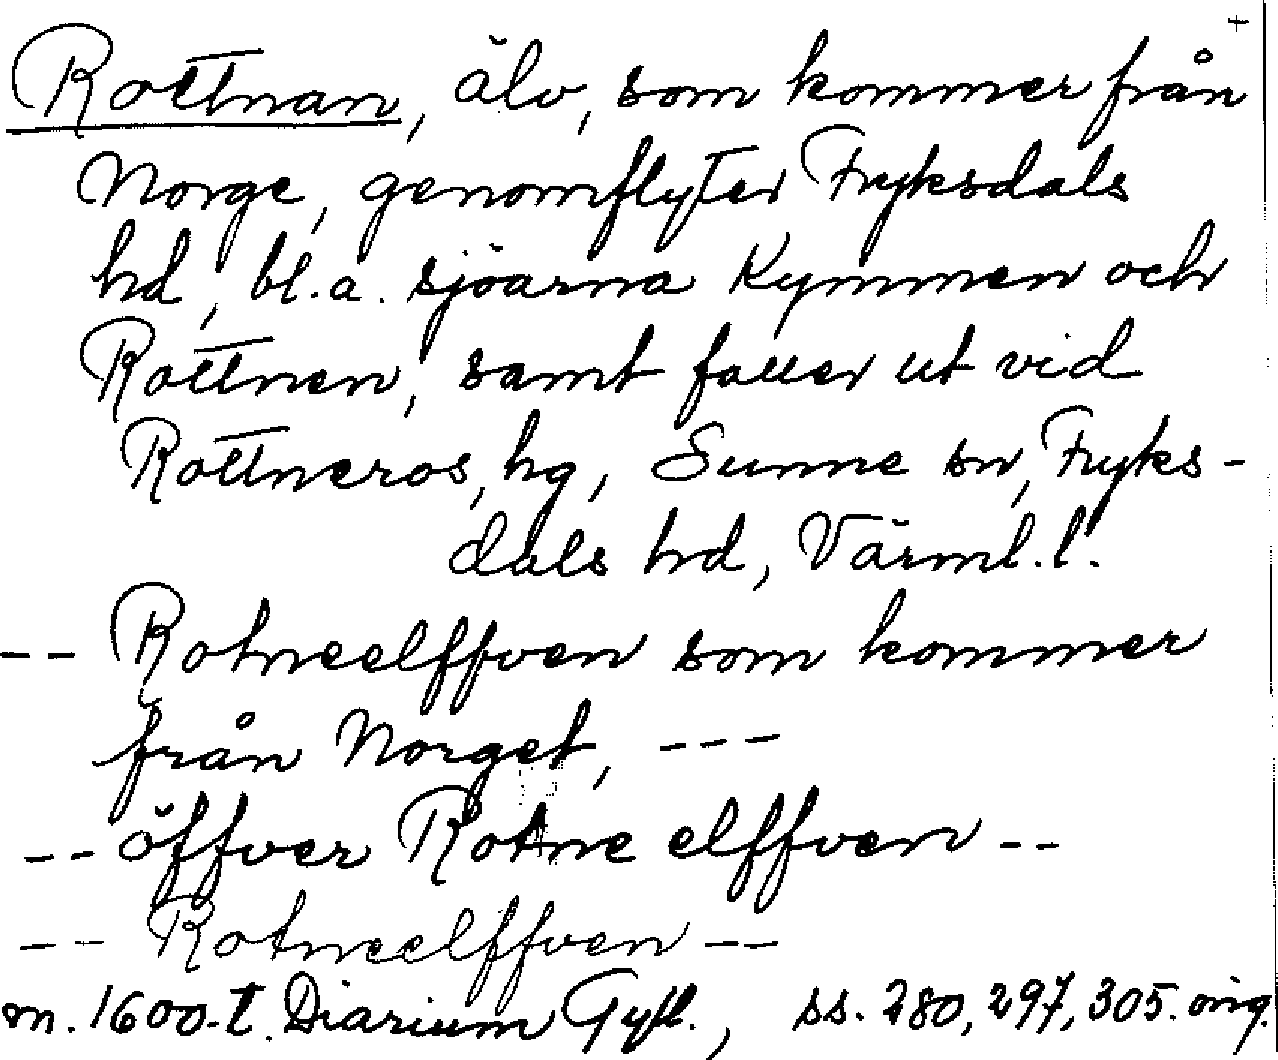 Rottnan, älv, som kommer från
Norge, genomflyter Fryksdals
hd, bl.a. sjöarna Kymmen och
Rottnen, samt faller ut vid
Rottneros, hg, Sunne sn, Fryks-
dals hd, Värml.l.
-- Rotneelffven som kommer
från Norget, ---
-- öffver Rotne elffven --
-- Rotneelffven --
m. 1600-t. Diarium Gyll., ss. 280, 297, 305. orig.